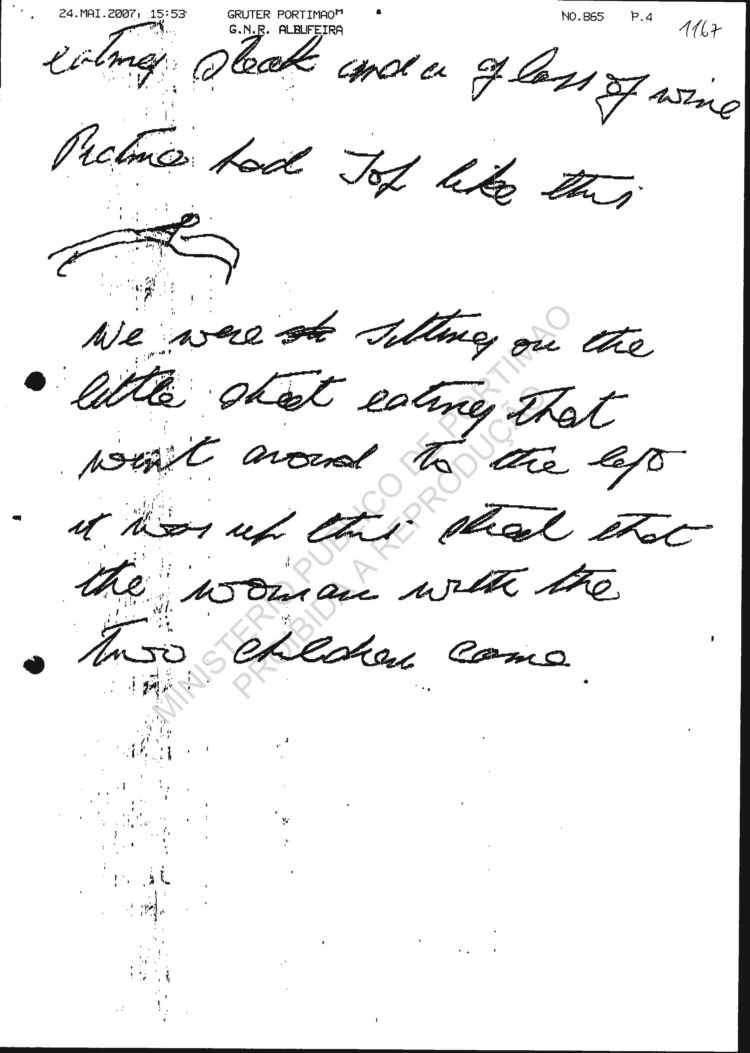 24.MAI.2007, 15:53 GRUTER PORTIMAO" NO.865 P.4
G.N.R. ALBUFEIRA
1167
eating steak and a glass of wine
Picture had Tof like this
We were sitting on the
little street eating that
went around to the left
it was up this street that
the woman with the
two children came.
MINISTERIO PUBLICO DE PORTIMAO
PROIBIDA A REPRODUÇÃO